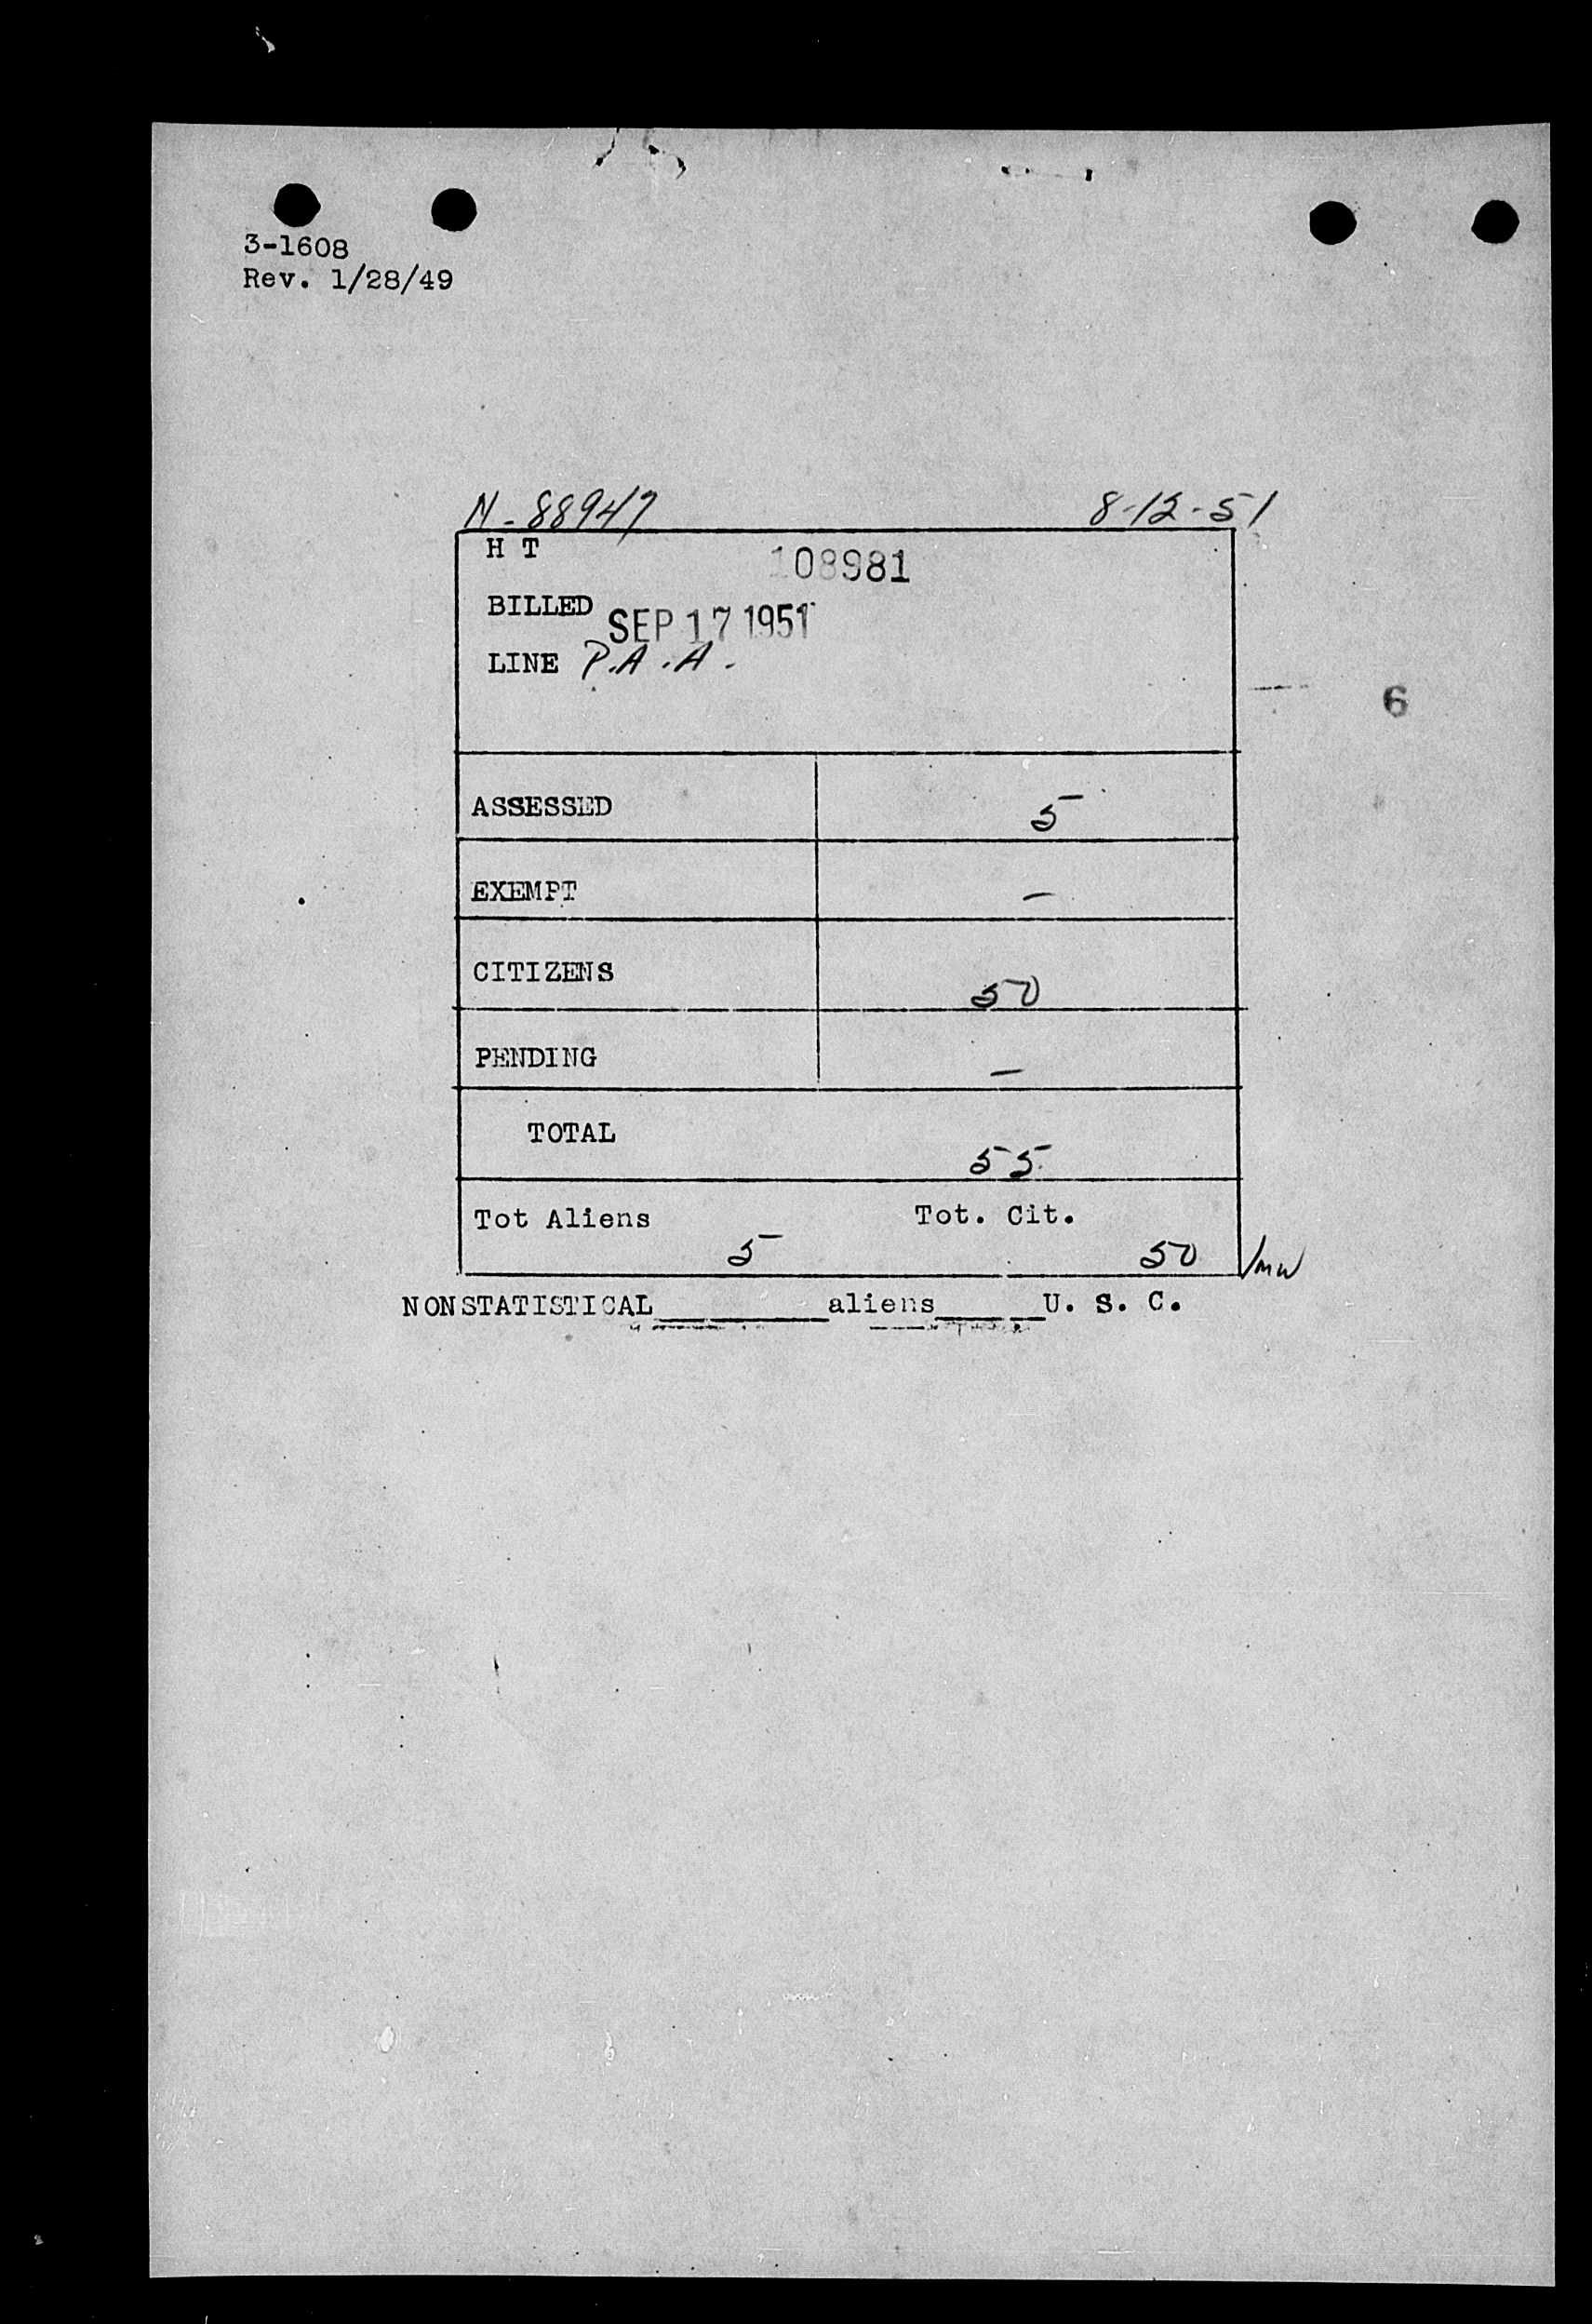 3-1608
Rev. 1/28/49
N-88947 8-12-51
H T 108981
BILLED SEP 17 1951
LINE P.A.A.
6
ASSESSED 5
EXEMPT –
CITIZENS 50
PENDING –
TOTAL 55
Tot Aliens 5 Tot. Cit. 50 /mw
NONSTATISTICAL________aliens_____U. S. C.